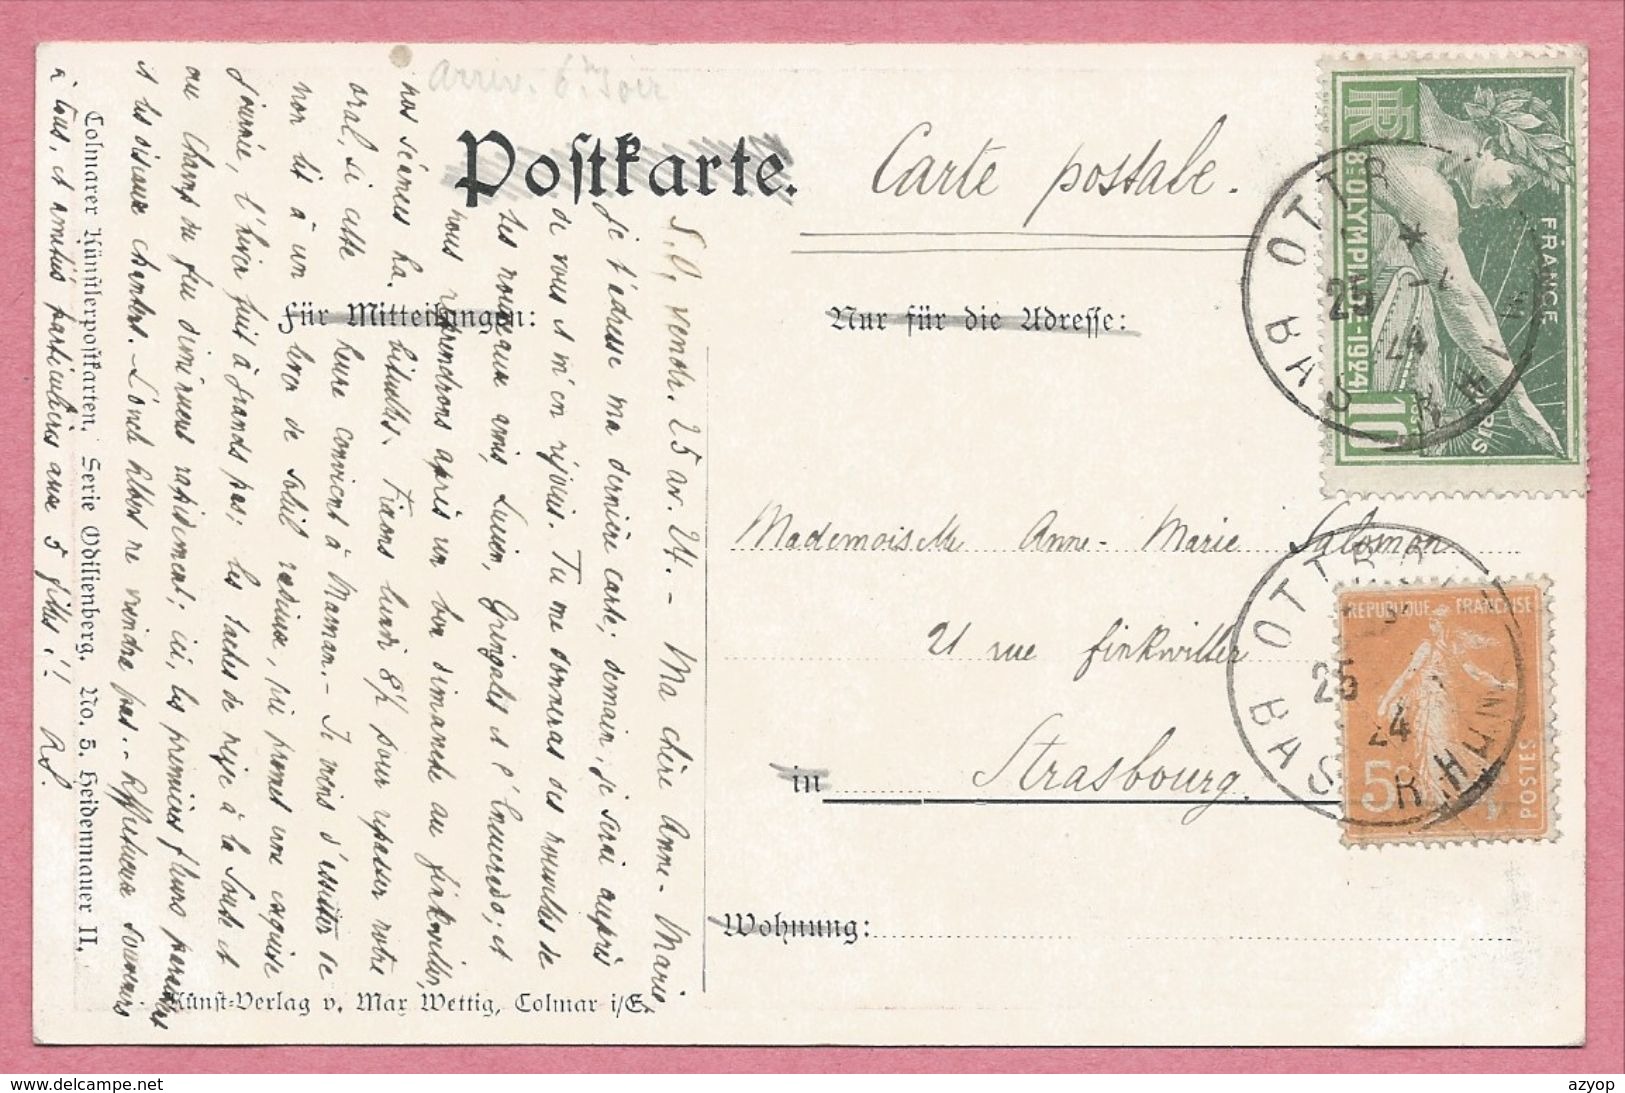 arriv. 6h soir
Postkarte.
Carte postale.
für Mitteilungen:
Nur für die Adresse:
Mademoiselle Anne-Marie Salomon
21 rue finkwiller
in Strasbourg.
Wohnung:
S.O, vendr. 25 av. 24. - Ma chère Anne-Marie,
Je t'adresse ma dernière carte; demain, je serai auprès
de vous et m'en réjouis. Tu me donneras des nouvelles de
tes nouveaux amis, Lucien, Gringalet et l'; et
nous reprendrons après un bon dimanche au finkwiller,
nos séances habituelles. Fixons lundi 8½ pour repasser notre
oral, si cette heure convient à Maman. - Je viens d'assister de
mon lit à un lever de soleil radieux, qui promet une exquise
journée, l'hiver fuit à grands pas; les taches de neige à la et
au Champ du feu diminuent rapidement; ici, les premières fleurs paraissent
et les oiseaux chantent. - L'oncle Albert ne viendra pas. - Affectueux souvenirs
à tous, et amitiés particulières aux 5 filles!! A.S.
Colmarer Künstlerpostkarten, Serie Odilienberg, No. 5. Heidenmauer II.
Kunst-Verlag v. Max Wettig, Colmar i/E.
RF
8e OLYMPIADE-1924
FRANCE
PARIS
10
OTTR
BAS RHIN
25
24
REPUBLIQUE FRANÇAISE
5c
POSTES
OTTRO
BAS RHIN
25
24
azyop